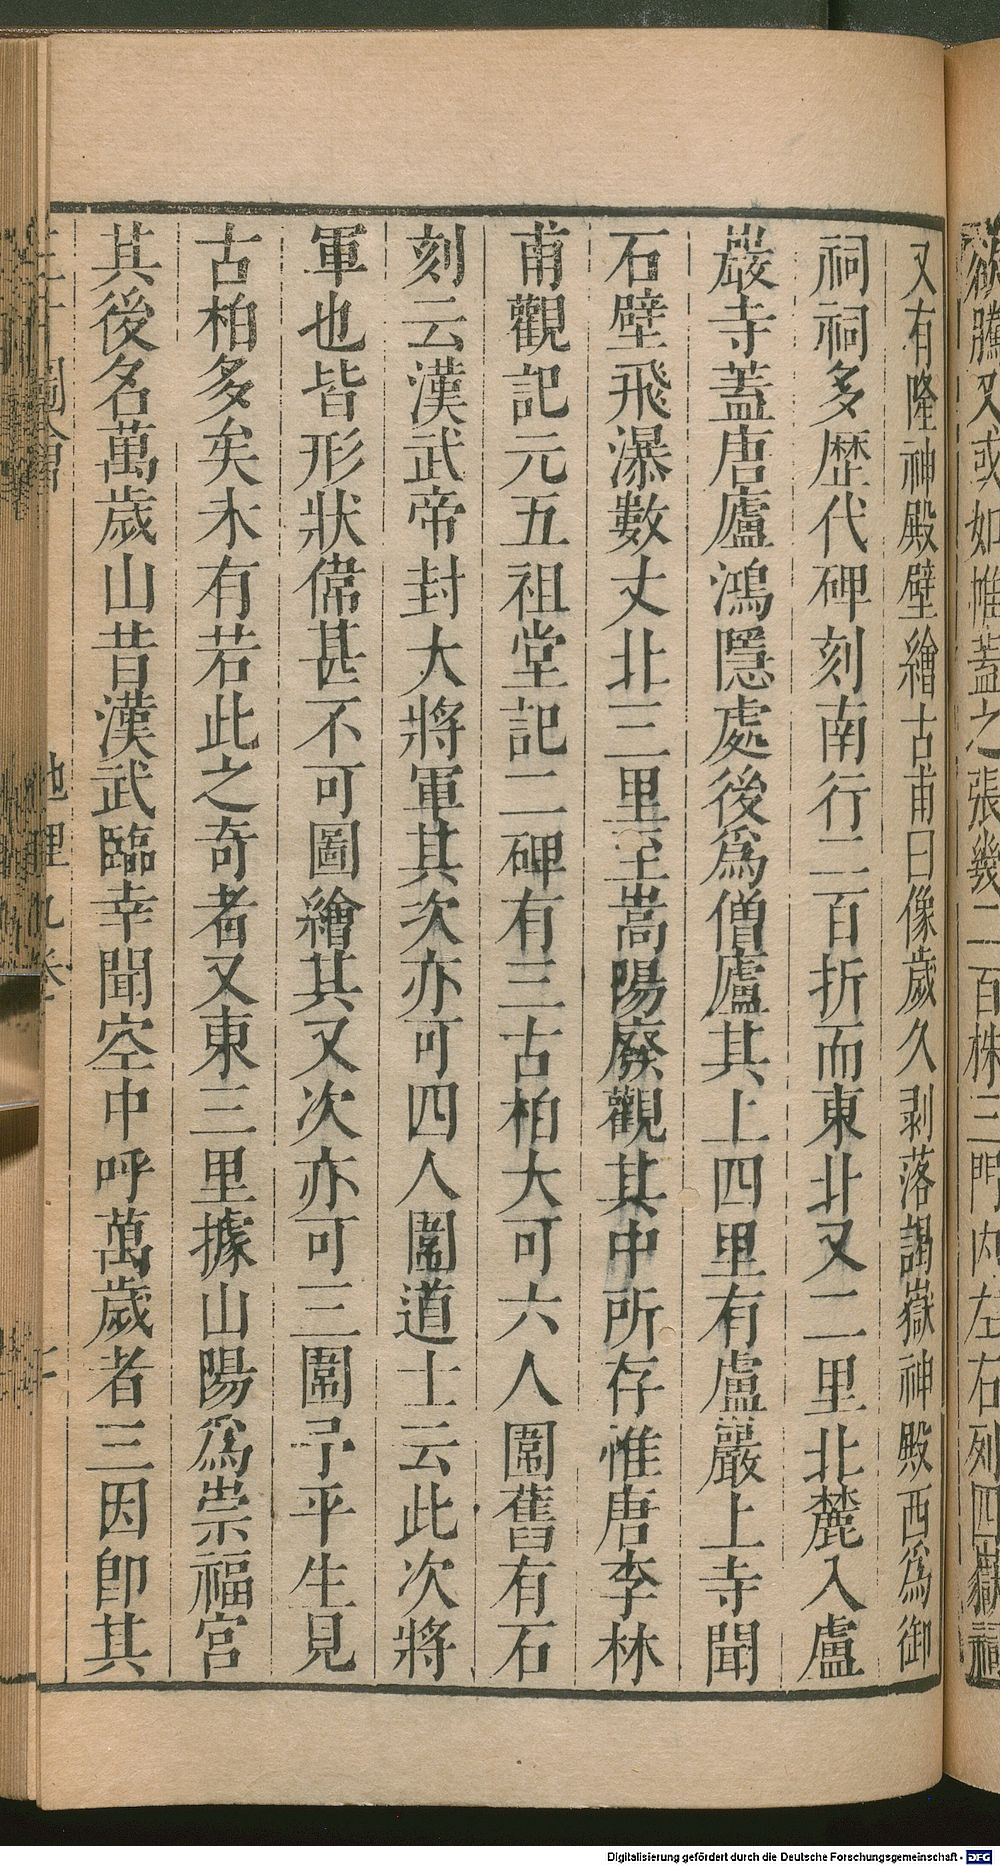 欲騰又或如帷蓋之張幾二百株三門内左右列四嶽祠
又有隆神殿壁繪古甫曰像歲久剥落謁嶽神殿西爲御
祠祠多歴代碑刻南行二百折而東北又二里北麓入盧
巖寺蓋唐廬鴻隱處後爲僧廬其上四里有盧巖上寺聞
石壁飛瀑數丈北三里至嵩陽廢觀其中所存惟唐李林
甫觀記元五祖堂記二碑有三古柏大可六人圍舊有石
刻云漢武帝封大將軍其次亦可四人圍道士云此次將
軍也皆形狀偉甚不可圖繪其又次亦可三圍予平生見
古柏多矣未有若此之奇者又東三里據山陽爲崇福宮
其後名萬歲山昔漢武臨幸聞空中呼萬歲者三因即其
三才圖會 地理九卷
Digitalisierung gefördert durch die Deutsche Forschungsgemeinschaft - DFG